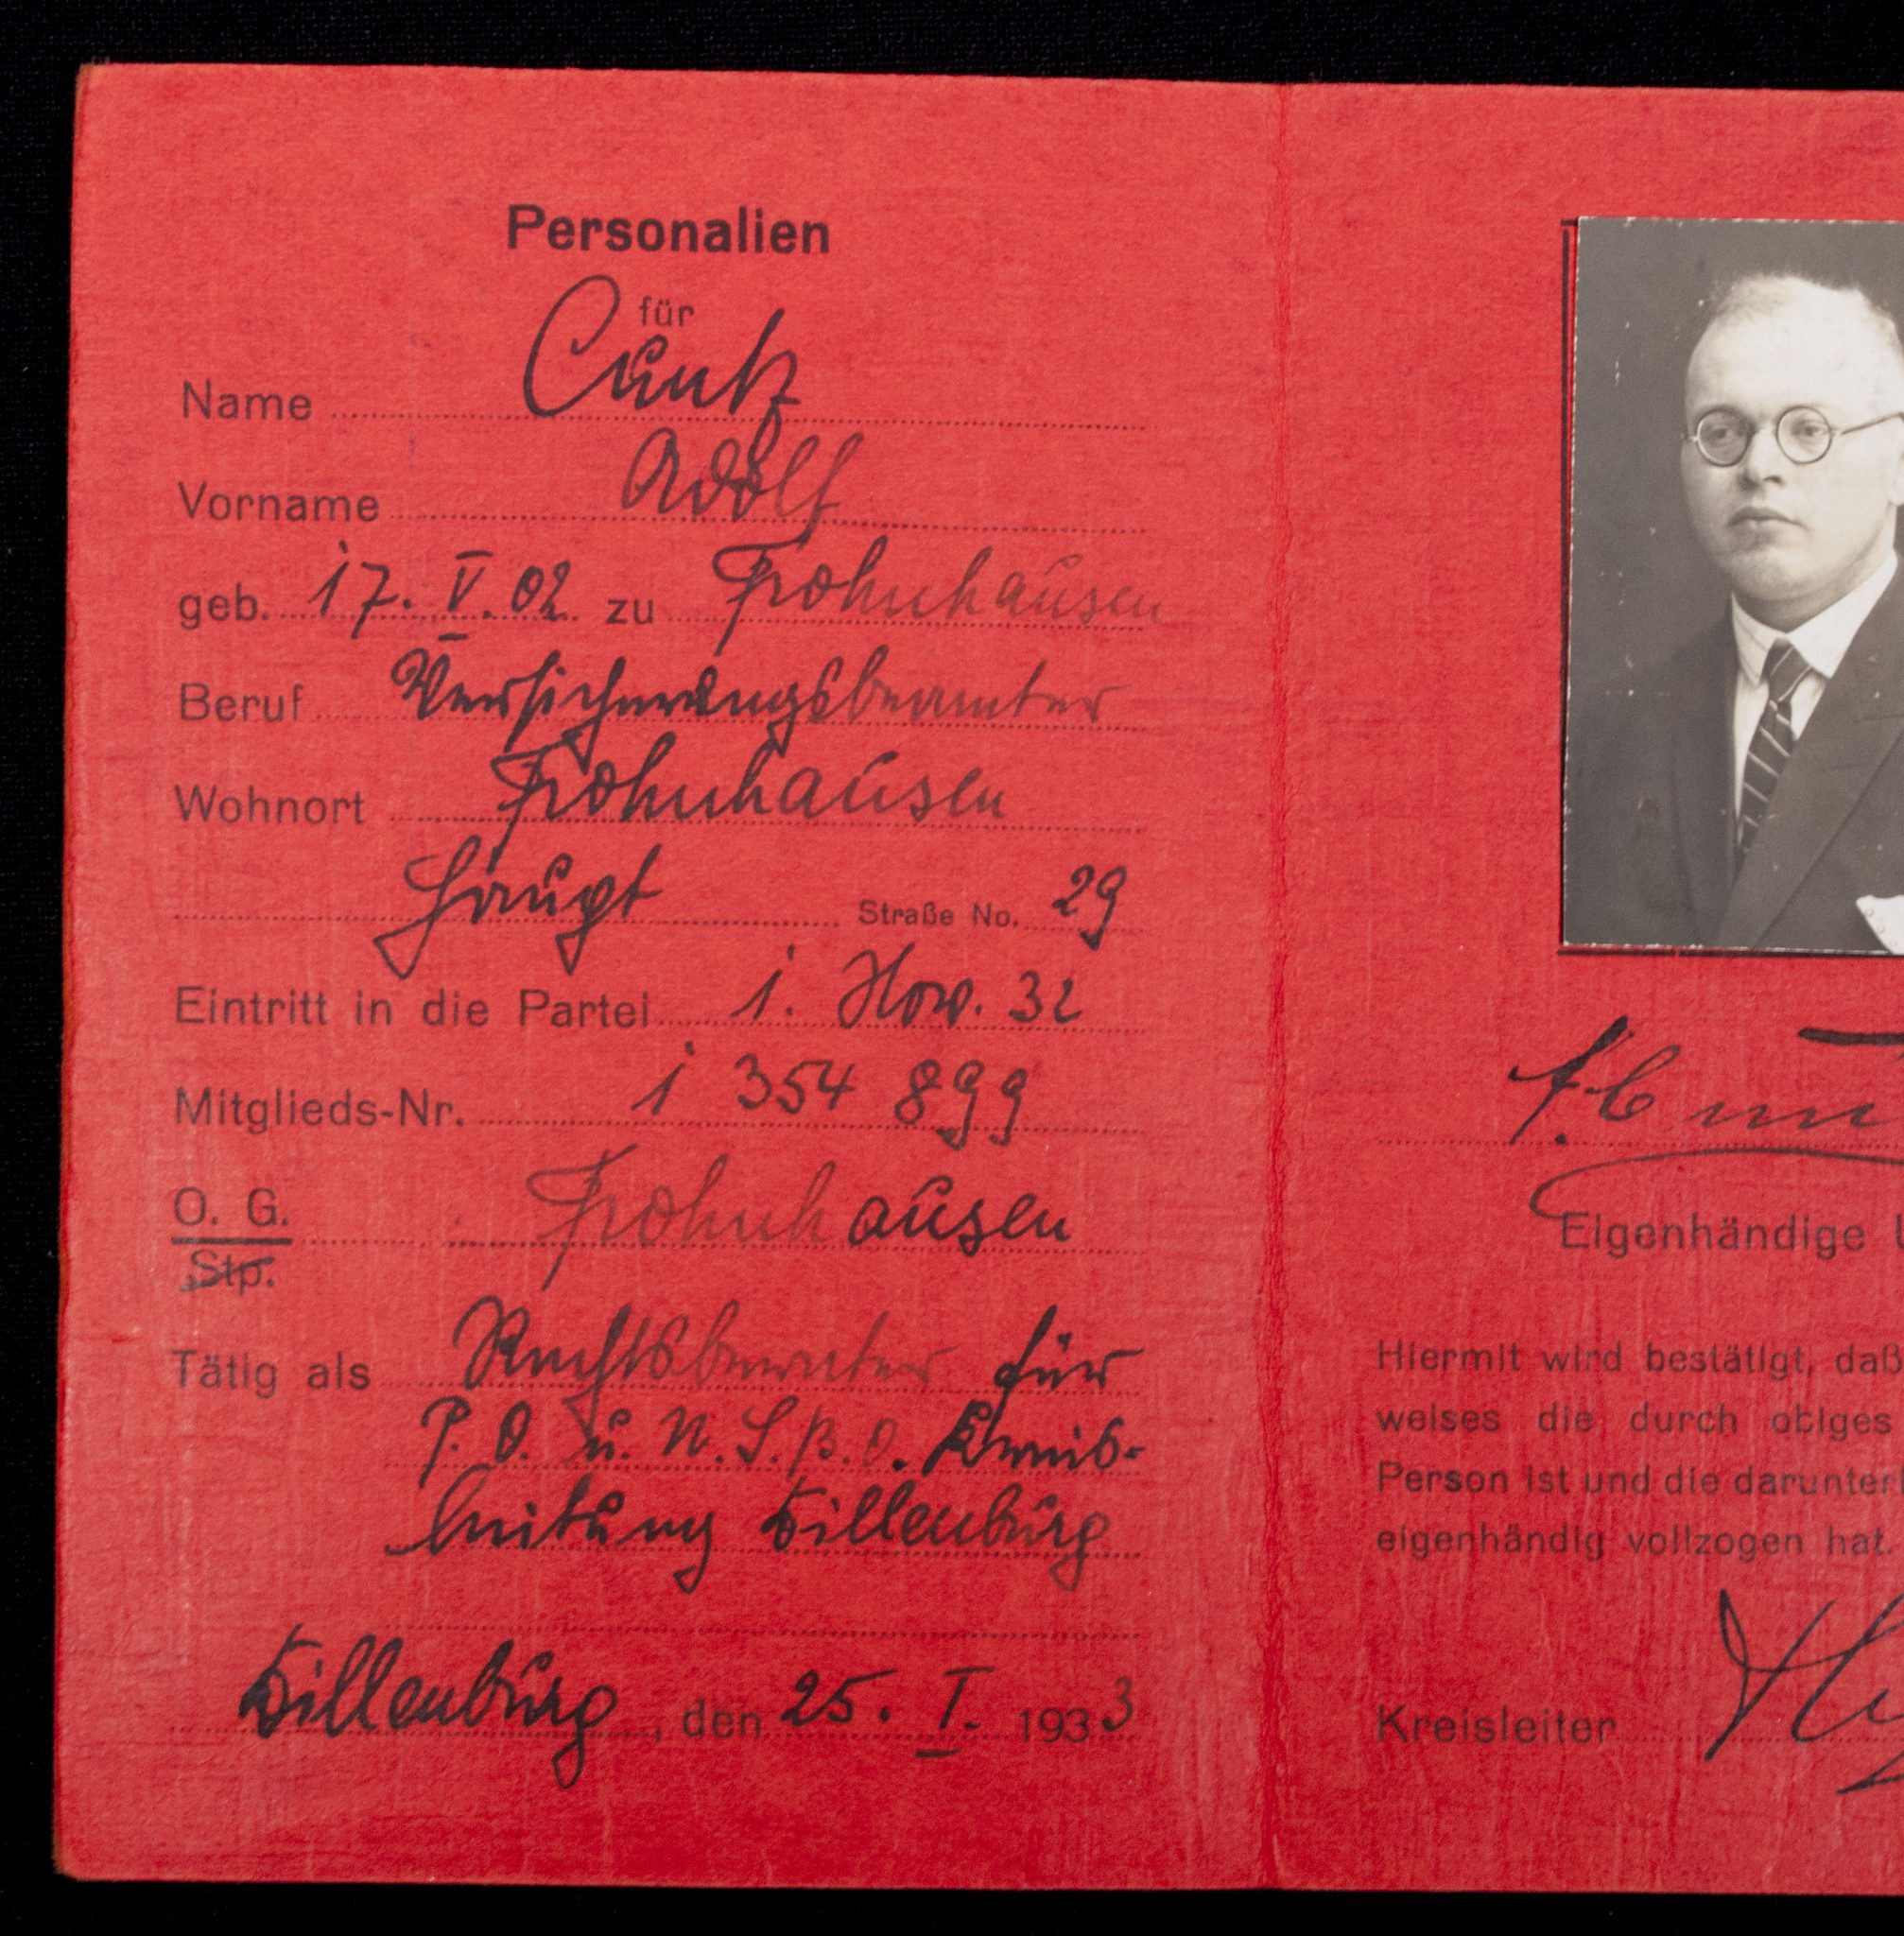 Personalien
für
Name Cuntz
Vorname Adolf
geb. 17. V. 02 zu Frohnhausen
Beruf Versicherungsbeamter
Wohnort Frohnhausen
Haupt Straße No. 29
Eintritt in die Partei 1. Nov. 32
Mitglieds-Nr. 1 354 899
O. G. Frohnhausen
Stp.
Tätig als Rechtsberater für
P. O. u. N. S. B. O. Kreis-
leitung Dillenburg
Dillenburg, den 25. I. 1933
Eigenhändige
Hiermit wird bestätigt, daß
weises die durch obiges
Person ist und die darunter
eigenhändig vollzogen hat.
Kreisleiter